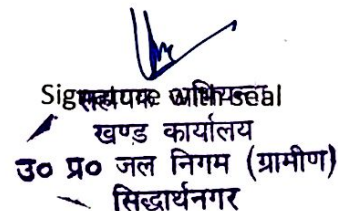 Signature with seal
सहायक अभियन्ता
खण्ड कार्यालय
उ० प्र० जल निगम (ग्रामीण)
सिद्धार्थनगर